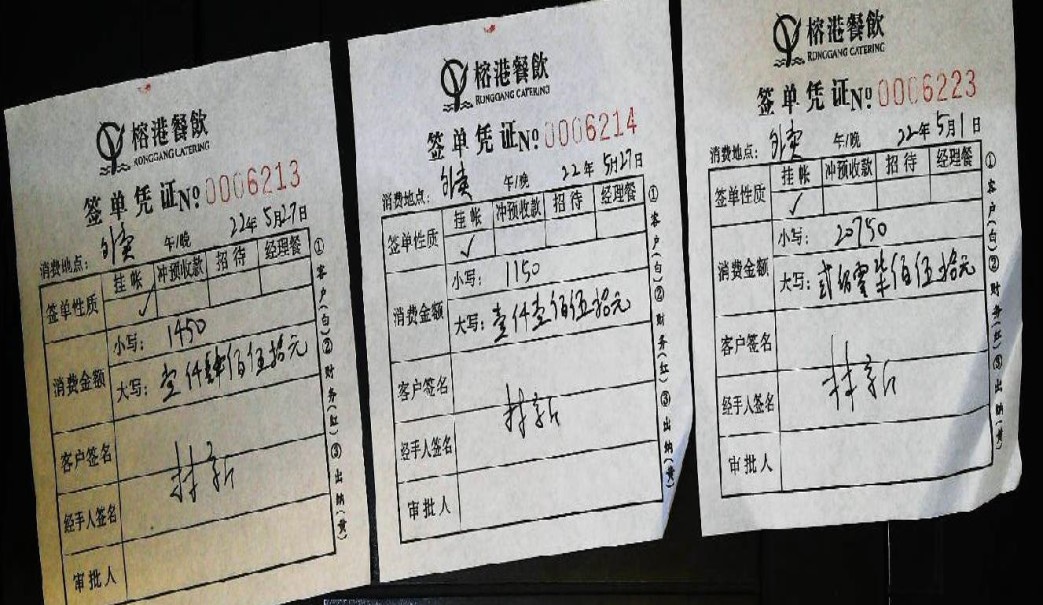 榕港餐飲
RONGGANG CATERING
签单凭证 Nº 0006213
消费地点: 外卖 午/晚 22年5月27日
签单性质 挂帐 冲预收款 招待 经理餐
✓
消费金额 小写: 1450
大写: 壹仟肆佰伍拾元
客户签名
经手人签名
审批人
①客户(白)②财务(红)③出纳(黄)
榕港餐飲
RONGGANG CATERING
签单凭证 Nº 0006214
消费地点: 外卖 午/晚 22年5月27日
签单性质 挂帐 冲预收款 招待 经理餐
✓
消费金额 小写: 1150
大写: 壹仟壹佰伍拾元
客户签名
经手人签名
审批人
①客户(白)②财务(红)③出纳(黄)
榕港餐飲
RONGGANG CATERING
签单凭证 Nº 0006223
消费地点: 外卖 午/晚 22年5月1日
签单性质 挂帐 冲预收款 招待 经理餐
✓
消费金额 小写: 20750
大写: 弍萬零柒佰伍拾元
客户签名
经手人签名
审批人
①客户(白)②财务(红)③出纳(黄)